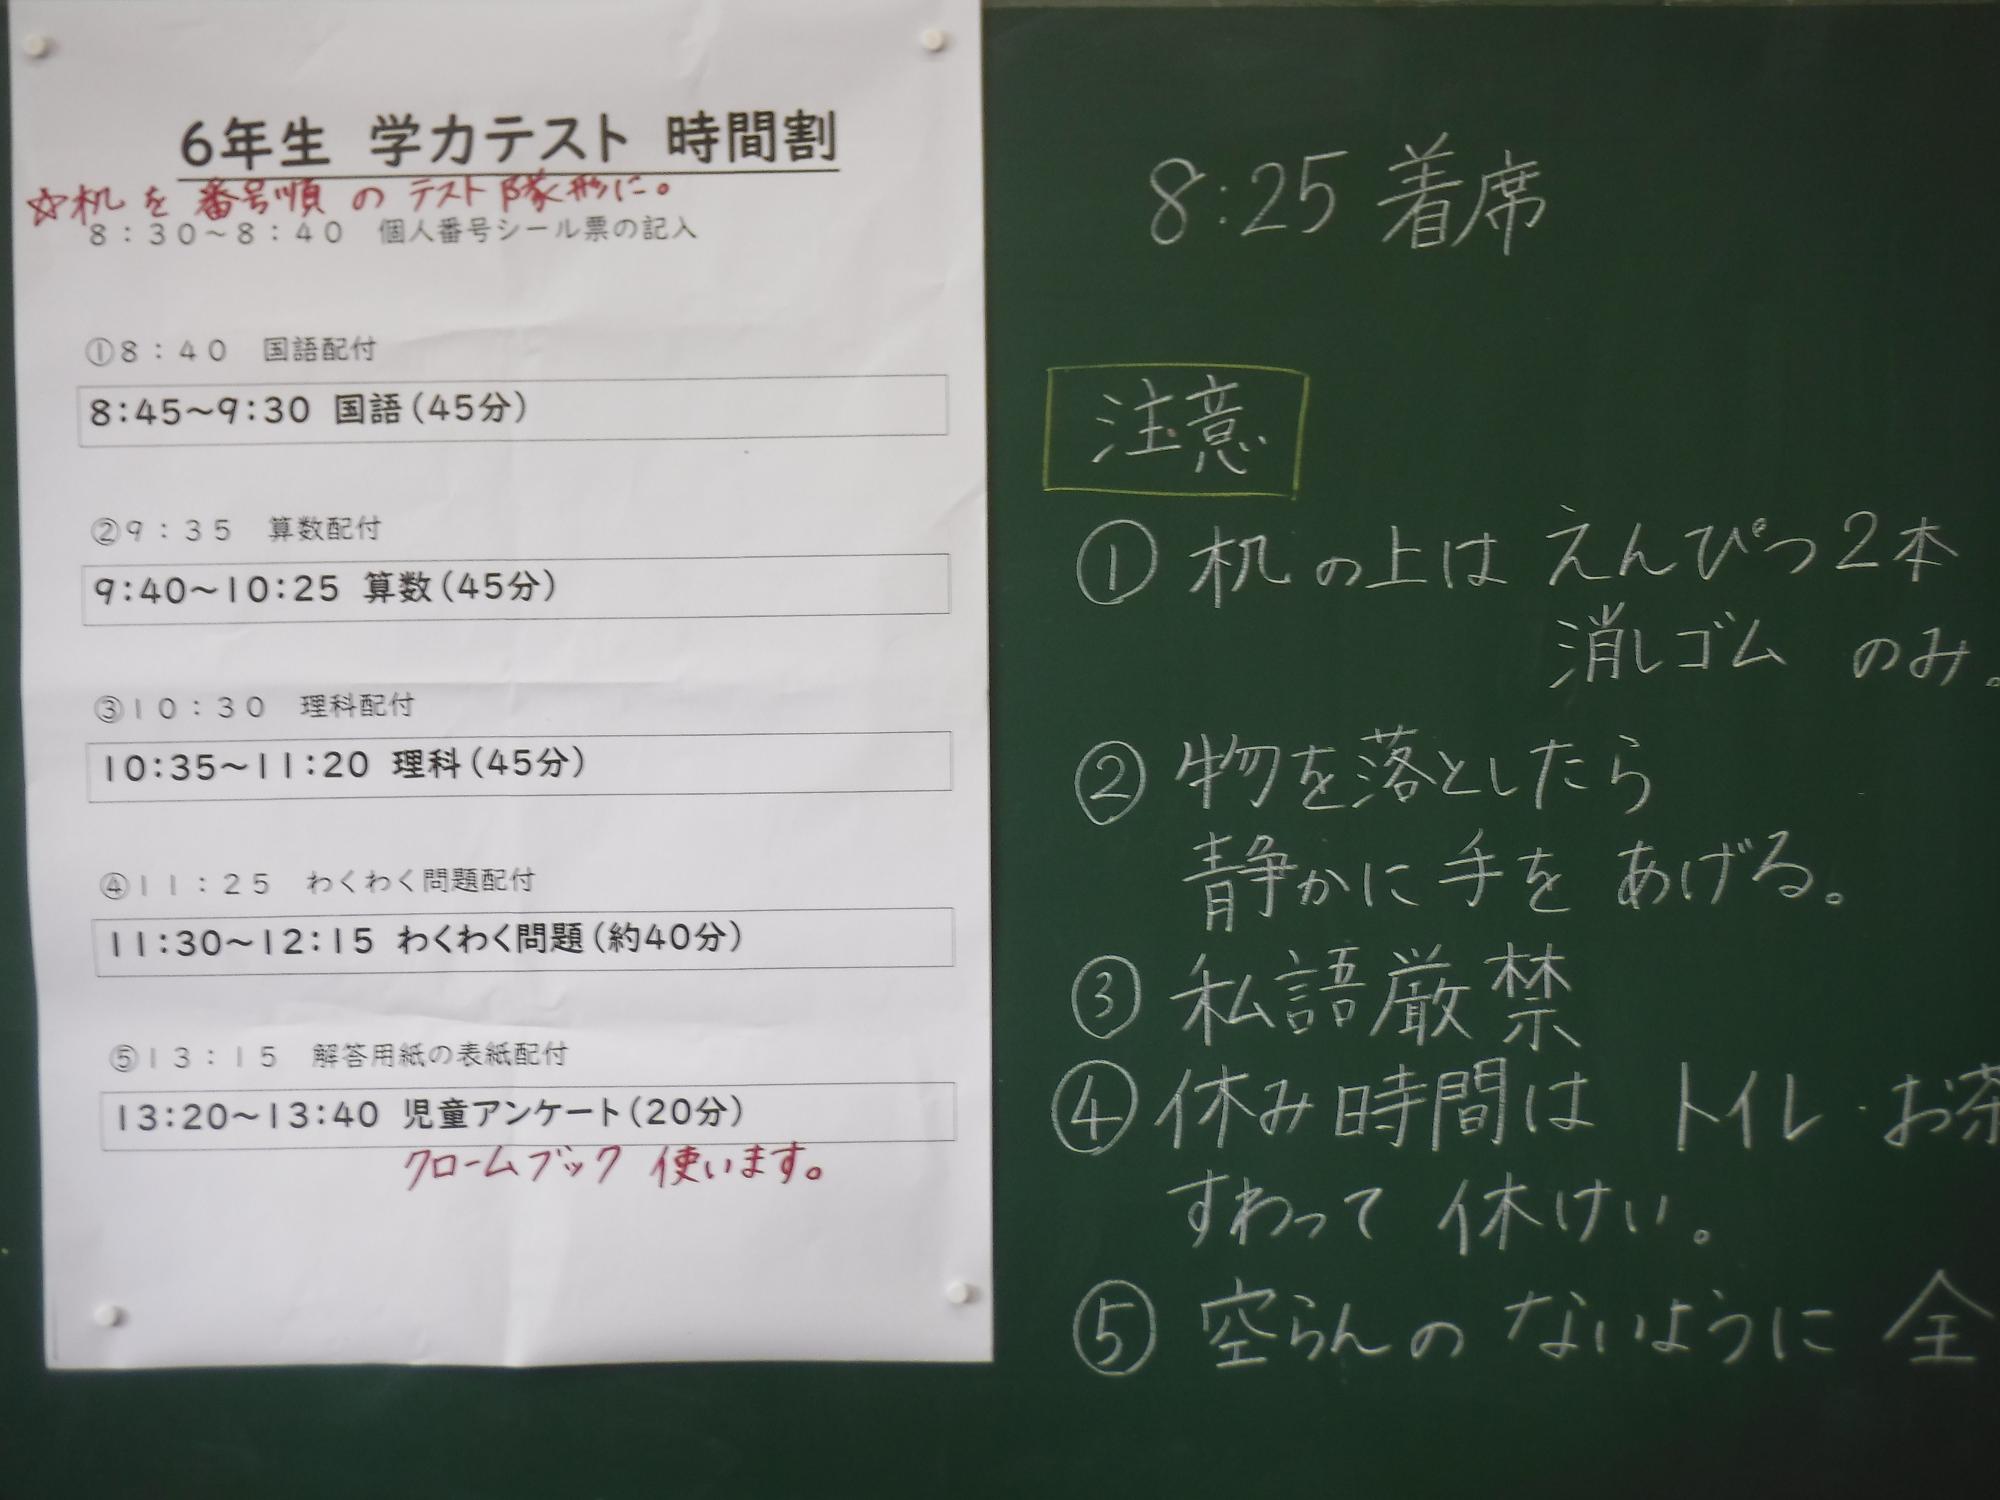 6年生 学力テスト 時間割
☆机を番号順のテスト隊形に。
8:30～8:40 個人番号シール票の記入
①8:40 国語配付
8:45～9:30 国語(45分)
②9:35 算数配付
9:40～10:25 算数(45分)
③10:30 理科配付
10:35～11:20 理科(45分)
④11:25 わくわく問題配付
11:30～12:15 わくわく問題(約40分)
⑤13:15 解答用紙の表紙配付
13:20～13:40 児童アンケート(20分)
クロームブック使います。
8:25 着席
注意
① 机の上は えんぴつ2本
消しゴム のみ。
② 物を落としたら
静かに手を あげる。
③ 私語厳禁
④ 休み時間は トイレ・お茶
すわって 休けい。
⑤ 空らんの ないように 全